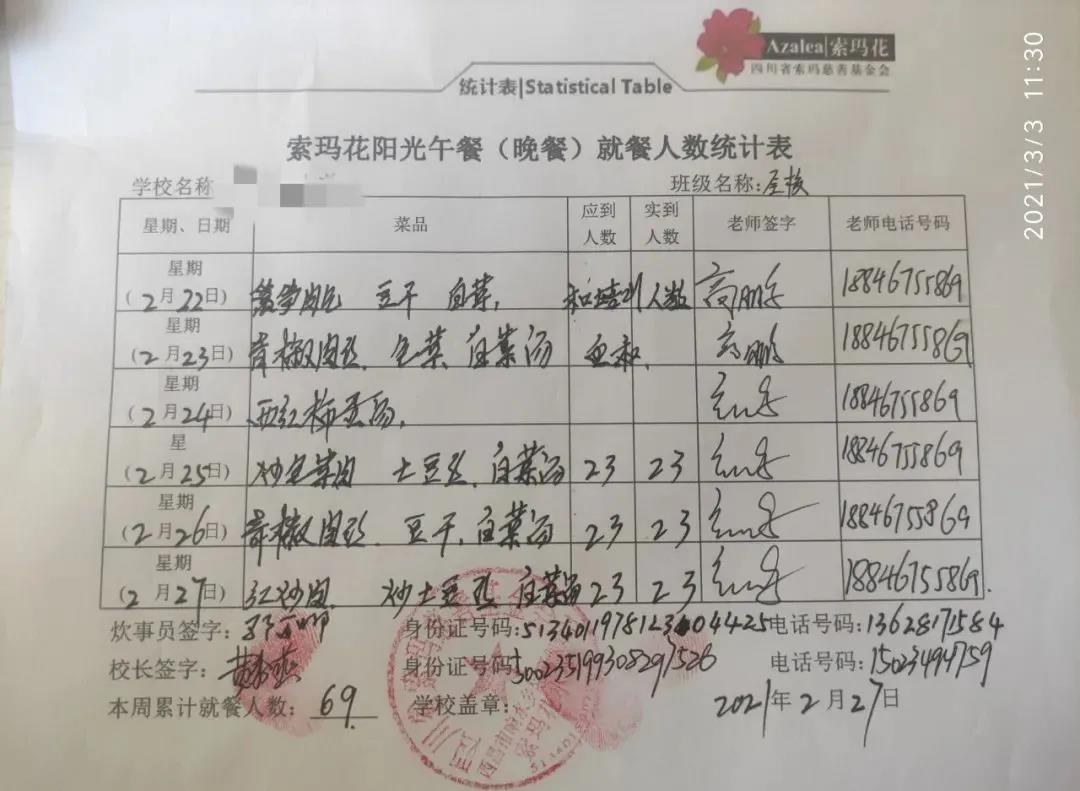 Azalea|索玛花
四川省索玛慈善基金会
2021/3/3 11:30
统计表|Statistical Table
索玛花阳光午餐（晚餐）就餐人数统计表
学校名称 班级名称:全校
星期、日期 菜品 应到人数 实到人数 老师签字 老师电话号码
星期
(2月22日) 豆干 白菜, 和培训人数 高鹏 18846755869
星期
(2月23日) 青椒肉丝. 包菜 白菜汤 高鹏 18846755869
星期
(2月24日) 西红柿蛋汤, 18846755869
星
(2月25日) 炒包菜肉 土豆丝. 白菜汤 23 23 18846755869
星期
(2月26日) 青椒肉丝. 豆干, 白菜汤 23 23 18846755869
星期
(2月27日) 红炒肉. 炒土豆丝 白菜汤 23 23 18846755869.
炊事员签字: 身份证号码: 电话号码:13628171584
校长签字: 身份证号码: 500235199308297526 电话号码:15023494759
本周累计就餐人数: 69 学校盖章: 2021年2月27日